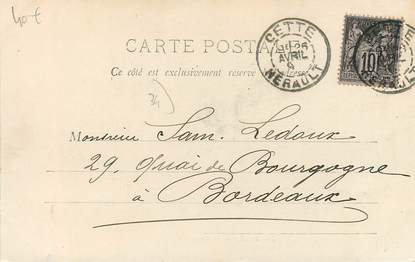 40 €
CARTE POSTALE
Ce côté est exclusivement réservé à l'adresse
CETTE
AVRIL
HERAULT
10
34
Monsieur Sam. Ledoux
29, Quai de Bourgogne
à
Bordeaux